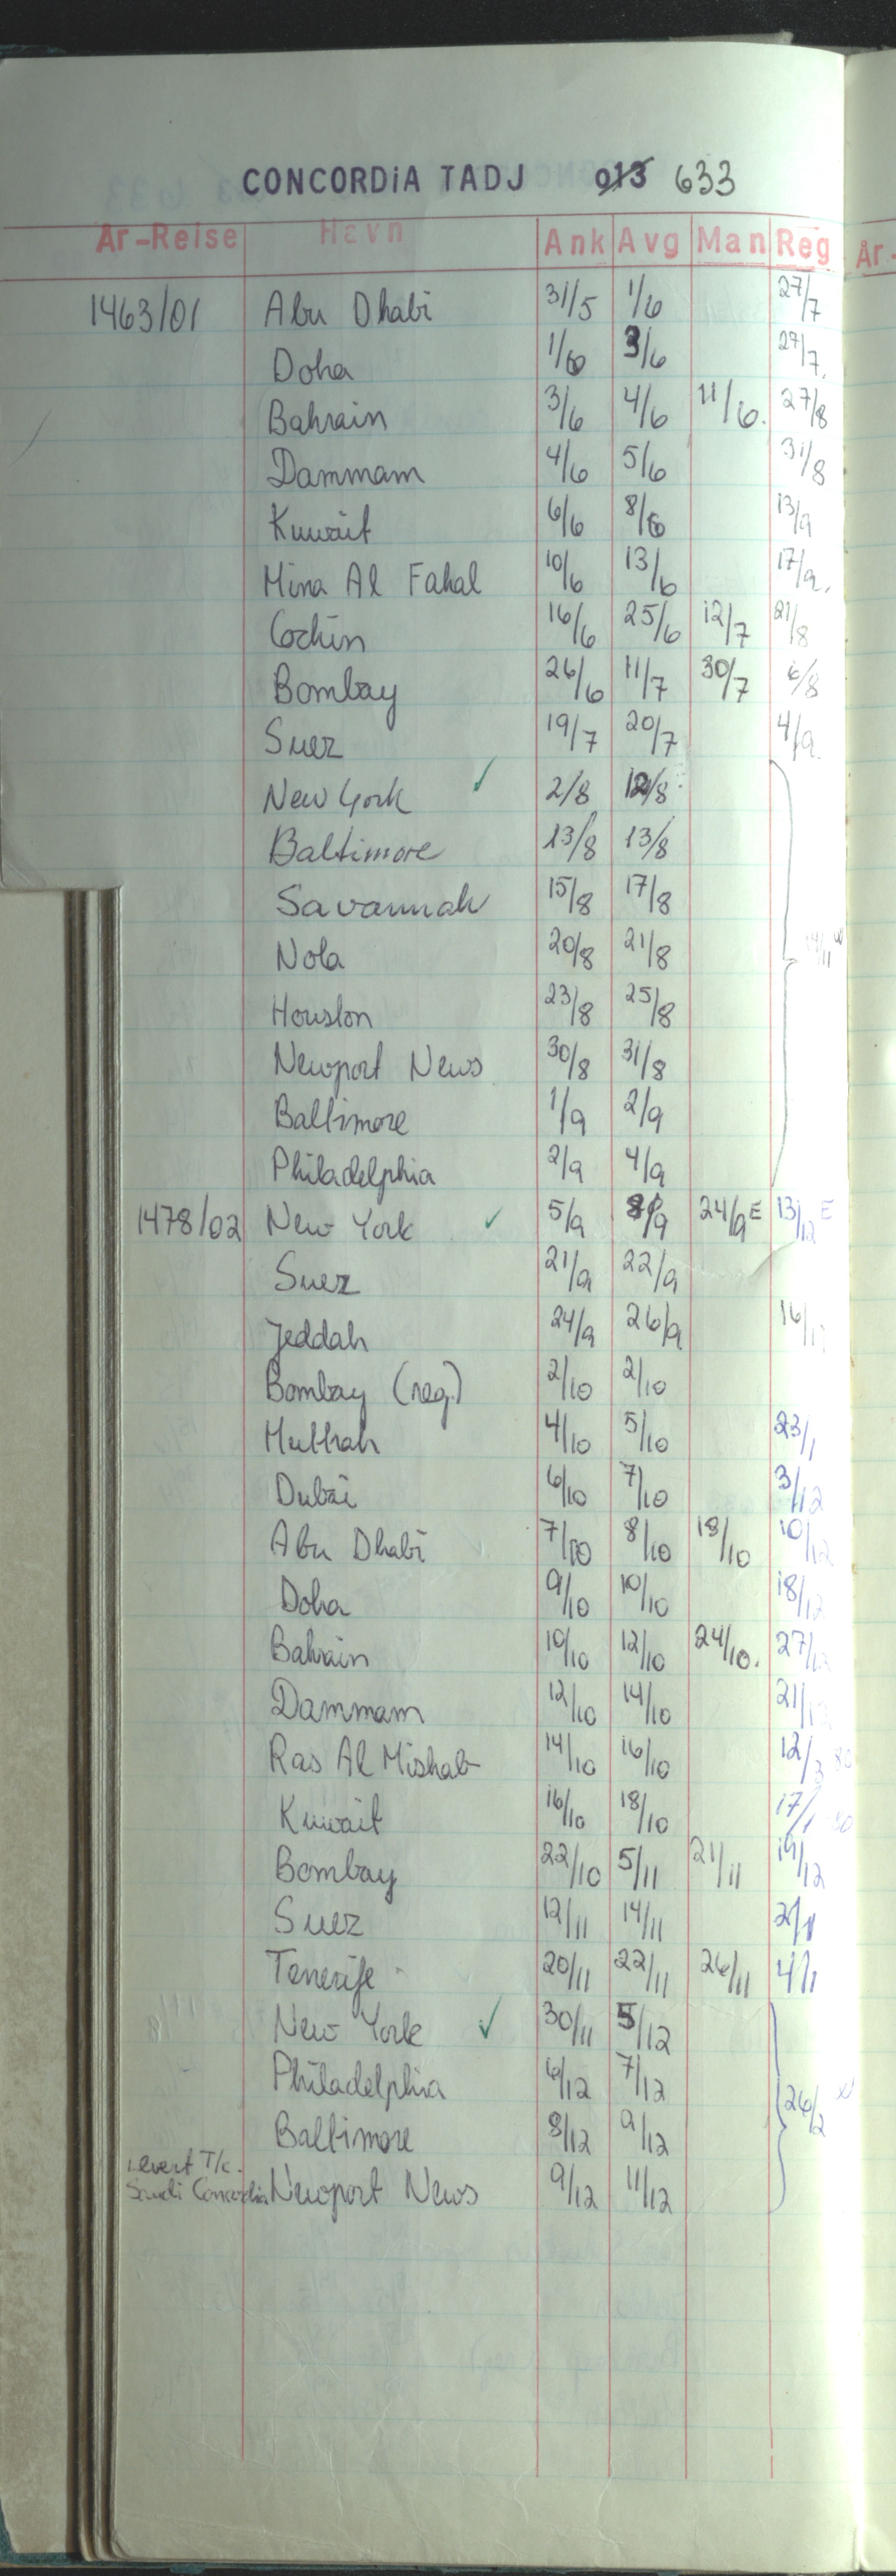 CONCORDIA TADJ 013 633
År-Reise Havn Ank Avg Man Reg År-
1463/01 Abu Dhabi 31/5 1/6 27/7
Doha 1/6 3/6 27/7.
Bahrain 3/6 4/6 11/6. 27/8
Dammam 4/6 5/6 31/8
Kuwait 6/6 8/6 13/9
Mina Al Fahal 10/6 13/6 17/9.
Cochin 16/6 25/6 12/7 21/8
Bombay 26/6 11/7 30/7 6/8
Suez 19/7 20/7 4/9.
New York ✓ 2/8 12/8
Baltimore 13/8 13/8
Savannah 15/8 17/8
Nola 20/8 21/8 14/11
Houston 23/8 25/8
Newport News 30/8 31/8
Baltimore 1/9 2/9
Philadelphia 2/9 4/9
1478/02 New York ✓ 5/9 8/9 24/9 E 13/12 E
Suez 21/9 22/9
Jeddah 24/9 26/9
Bombay (reg.) 2/10 2/10
Muttrah 4/10 5/10 23/1
Dubai 6/10 7/10 3/12
Abu Dhabi 7/10 8/10 18/10 10/12
Doha 9/10 10/10 18/12
Bahrain 10/10 12/10 24/10. 27/12
Dammam 12/10 14/10 21/12
Ras Al Mishab 14/10 16/10 12/3 80
Kuwait 16/10 18/10 17/1 80
Bombay 22/10 5/11 21/11 19/12
Suez 12/11 14/11
Tenerife 20/11 22/11 26/11 4/1
New York ✓ 30/11 5/12
Philadelphia 6/12 7/12
Baltimore 8/12 9/12 26/2
Levert T/c.
Saudi Concordia Newport News 9/12 11/12